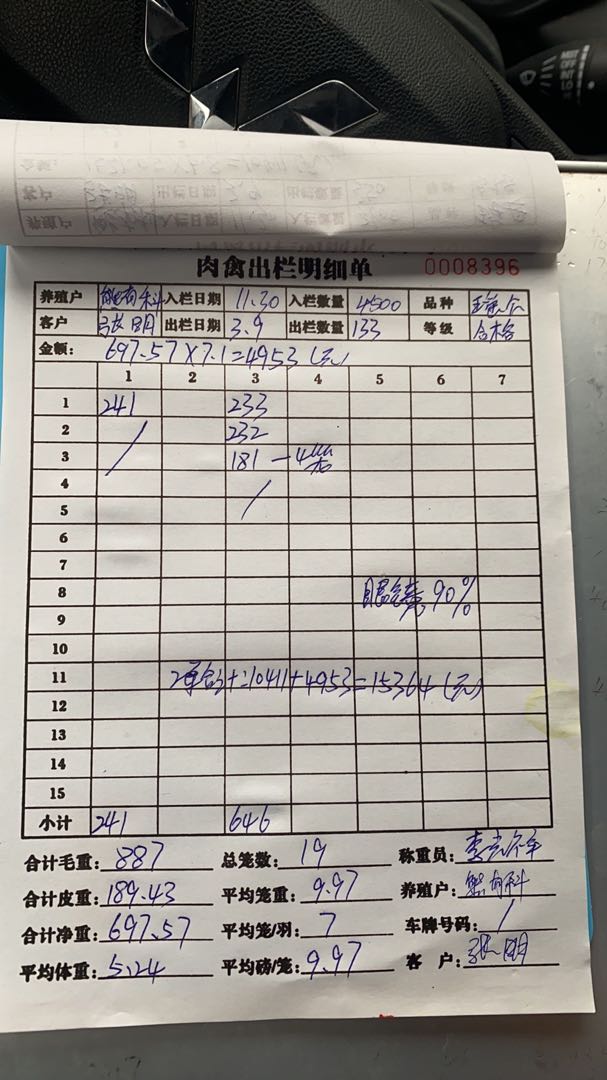 肉禽出栏明细单 0008396
养殖户 熊有科 入栏日期 11.30 入栏数量 4500 品种
客户 张明 出栏日期 3.9 出栏数量 133 等级 合格
金额: 697.57×7.1=4953(元)
1 2 3 4 5 6 7
1 241 233
2 232
3 181 -4
4
5
6
7
8 90%
9
10
11 2单合计:10411+4953=15364(元)
12
13
14
15
小计 241 646
合计毛重: 887 总笼数: 19 称重员:
合计皮重: 189.43 平均笼重: 9.97 养殖户: 熊有科
合计净重: 697.57 平均笼/羽: 7 车牌号码: /
平均体重: 5.24 平均磅/笼: 9.97 客 户: 张明